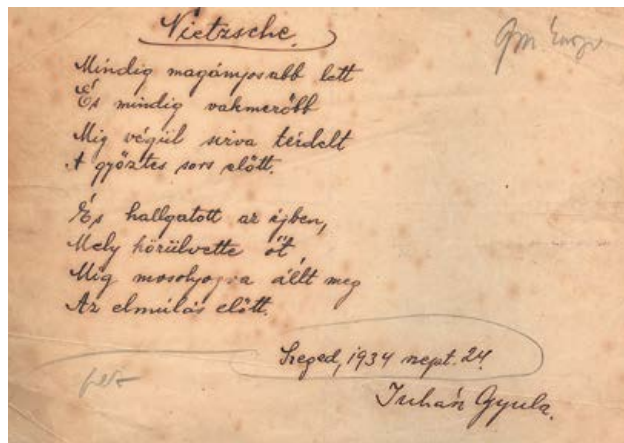 Nietzsche.
Mindig magánosabb lett
És mindig vakmerőbb
Míg végül sírva térdelt
A győztes sors előtt.
És hallgatott az éjben,
Mely körülvette őt,
Míg mosolyogva állt meg
Az elmúlás előtt.
Szeged, 1934 szept. 24.
Juhász Gyula.